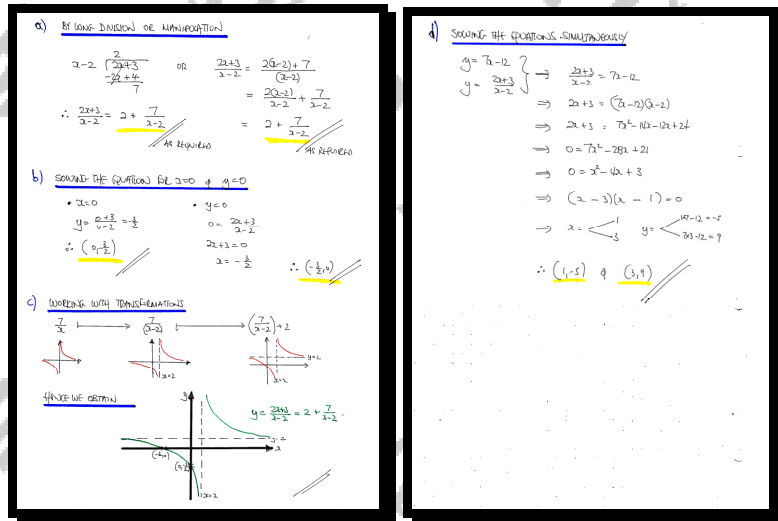 a) BY LONG DIVISION OR MANIPULATION
2
x-2 | 2x+3
-2x+4
7
∴ 2x+3/x-2 = 2 + 7/x-2
AS REQUIRED
OR
2x+3/x-2 = 2(x-2)+7/(x-2)
= 2(x-2)/x-2 + 7/x-2
= 2 + 7/x-2
AS REQUIRED
b) SOLVING THE EQUATION FOR x=0 & y=0
• x=0
y = 0+3/0-2 = -3/2
∴ (0,-3/2)
• y=0
0 = 2x+3/x-2
2x+3=0
x = -3/2
∴ (-3/2,0)
c) WORKING WITH TRANSFORMATIONS
7/x ⟼ 7/(x-2) ⟼ (7/x-2)+2
x=2
y=2
x=2
HENCE WE OBTAIN
y
y = 2x+3/x-2 = 2 + 7/x-2
y=2
x
(-3/2,0)
x=2
d) SOLVING THE EQUATIONS SIMULTANEOUSLY
y = 7x-12
y = 2x+3/x-2
⟹ 2x+3/x-2 = 7x-12
⟹ 2x+3 = (7x-12)(x-2)
⟹ 2x+3 = 7x²-14x-12x+24
⟹ 0 = 7x²-28x+21
⟹ 0 = x²-4x+3
⟹ (x-3)(x-1)=0
⟹ x = 1 3 y = 1×7-12=-5 7×3-12=9
∴ (1,-5) & (3,9)